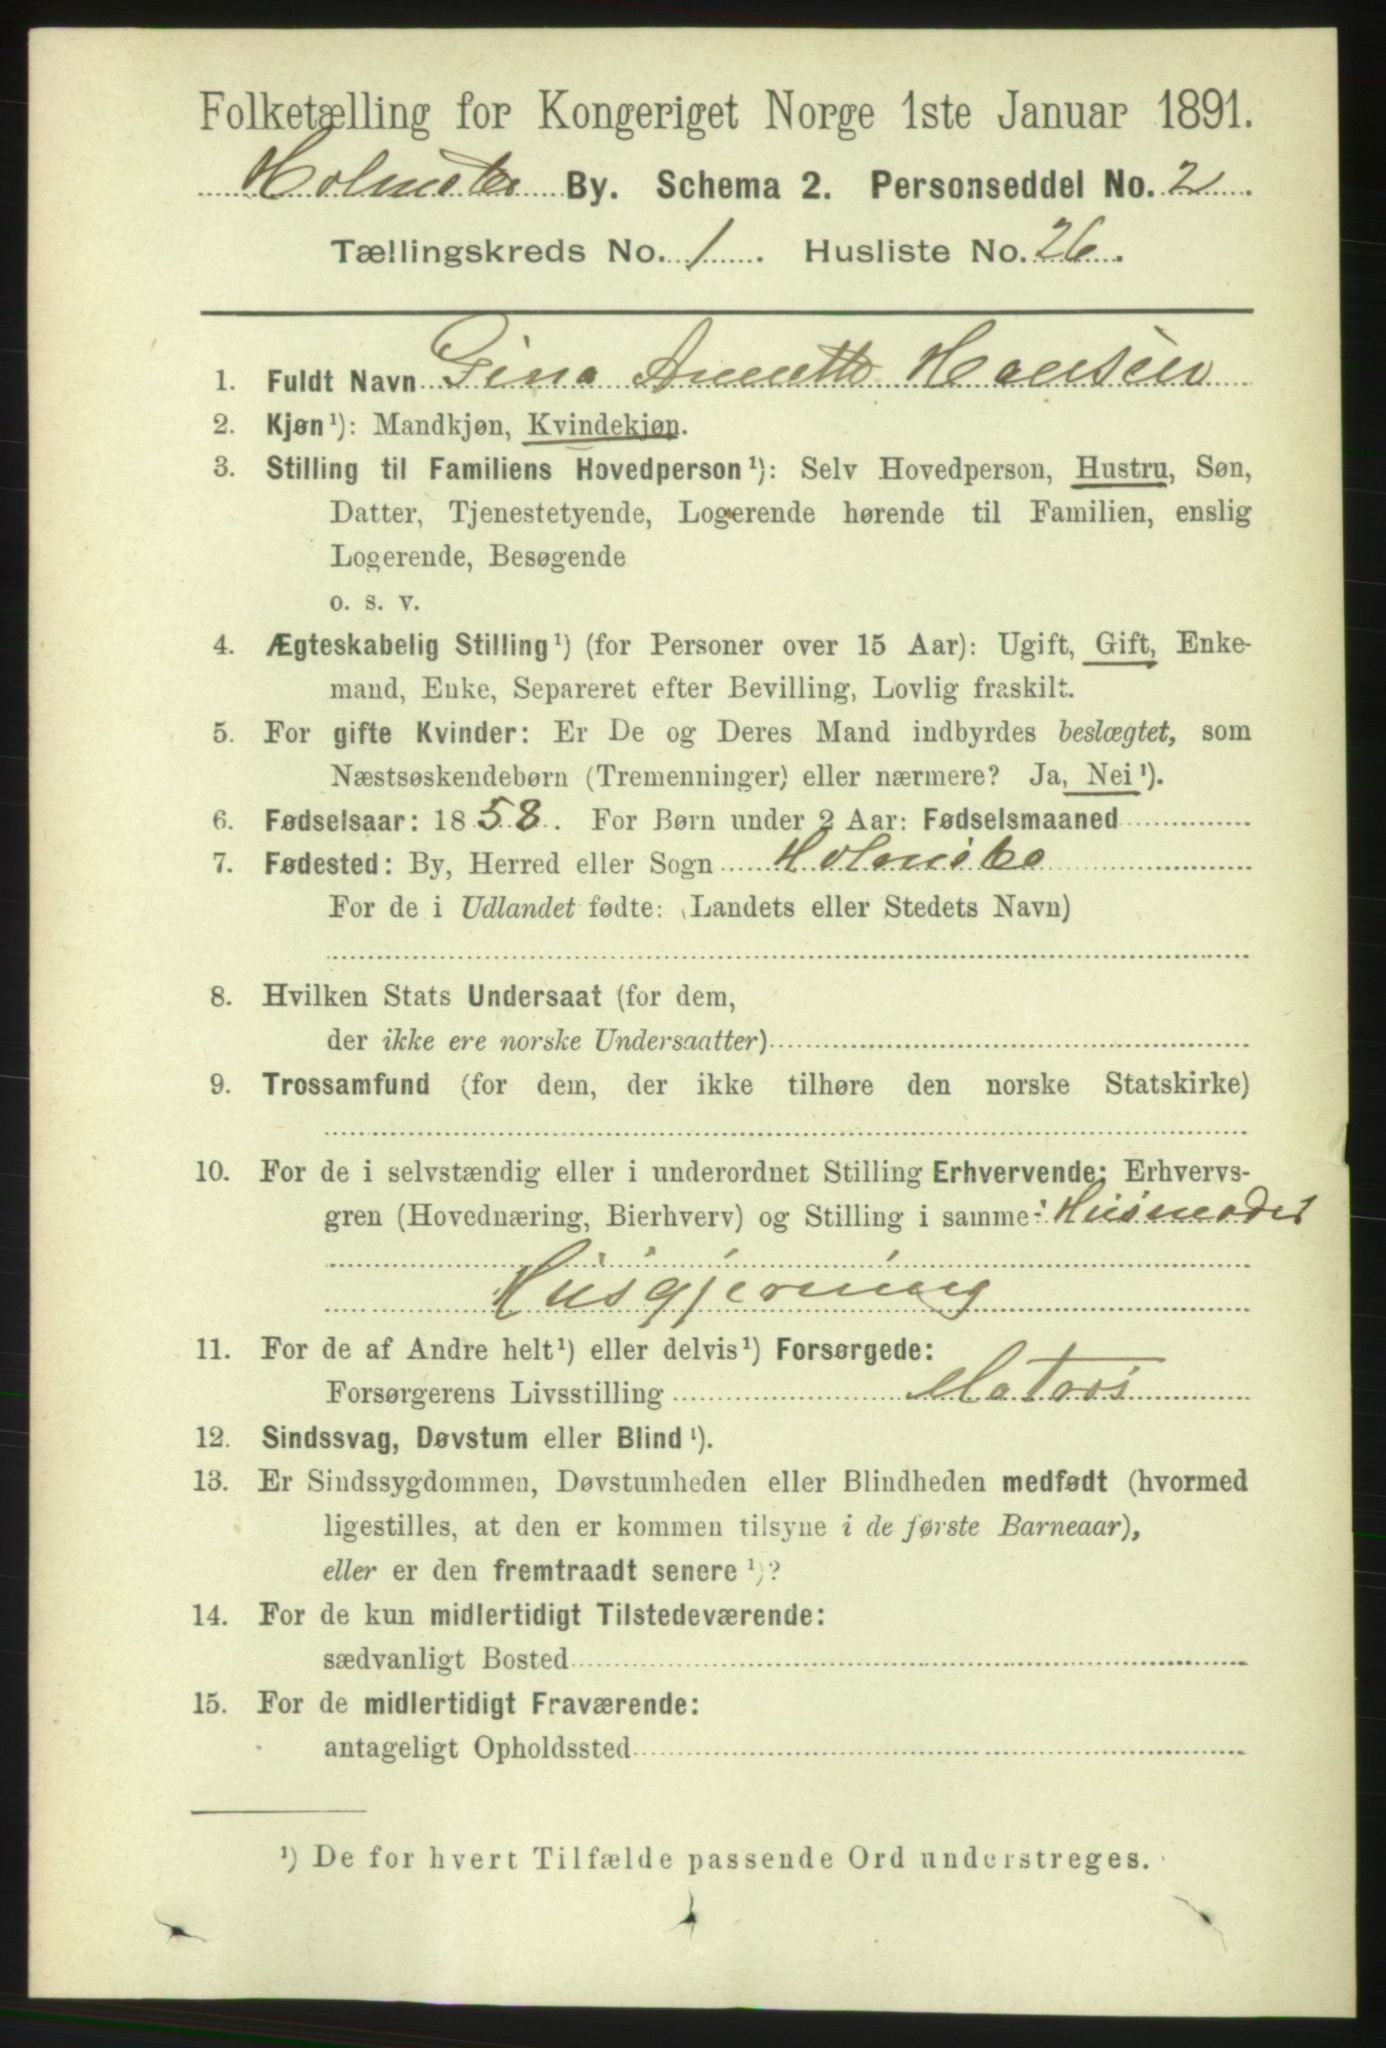 Folketælling for Kongeriget Norge 1ste Januar 1891.
Holmsbo By. Schema 2. Personseddel No. 2.
Tællingskreds No. 1. Husliste No. 26.
1. Fuldt Navn Gina Annette Hansen
2. Kjøn¹): Mandkjøn, Kvindekjøn.
3. Stilling til Familiens Hovedperson¹): Selv Hovedperson, Hustru, Søn,
Datter, Tjenestetyende, Logerende hørende til Familien, enslig
Logerende, Besøgende
o. s. v.
4. Ægteskabelig Stilling¹) (for Personer over 15 Aar): Ugift, Gift, Enke-
mand, Enke, Separeret efter Bevilling, Lovlig fraskilt.
5. For gifte Kvinder: Er De og Deres Mand indbyrdes beslægtet, som
Næstsøskendebørn (Tremenninger) eller nærmere? Ja, Nei¹).
6. Fødselsaar: 1858. For Børn under 2 Aar: Fødselsmaaned
7. Fødested: By, Herred eller Sogn Holmsbo
For de i Udlandet fødte: (Landets eller Stedets Navn)
8. Hvilken Stats Undersaat (for dem,
der ikke ere norske Undersaatter)
9. Trossamfund (for dem, der ikke tilhøre den norske Statskirke)
10. For de i selvstændig eller i underordnet Stilling Erhvervende: Erhvervs-
gren (Hovednæring, Bierhverv) og Stilling i samme: Husmoder
Husgjerning
11. For de af Andre helt¹) eller delvis¹) Forsørgede:
Forsørgerens Livsstilling Matros
12. Sindssvag, Døvstum eller Blind¹).
13. Er Sindssygdommen, Døvstumheden eller Blindheden medfødt (hvormed
ligestilles, at den er kommen tilsyne i de første Barneaar),
eller er den fremtraadt senere¹)?
14. For de kun midlertidigt Tilstedeværende:
sædvanligt Bosted
15. For de midlertidigt Fraværende:
antageligt Opholdssted
¹) De for hvert Tilfælde passende Ord understreges.